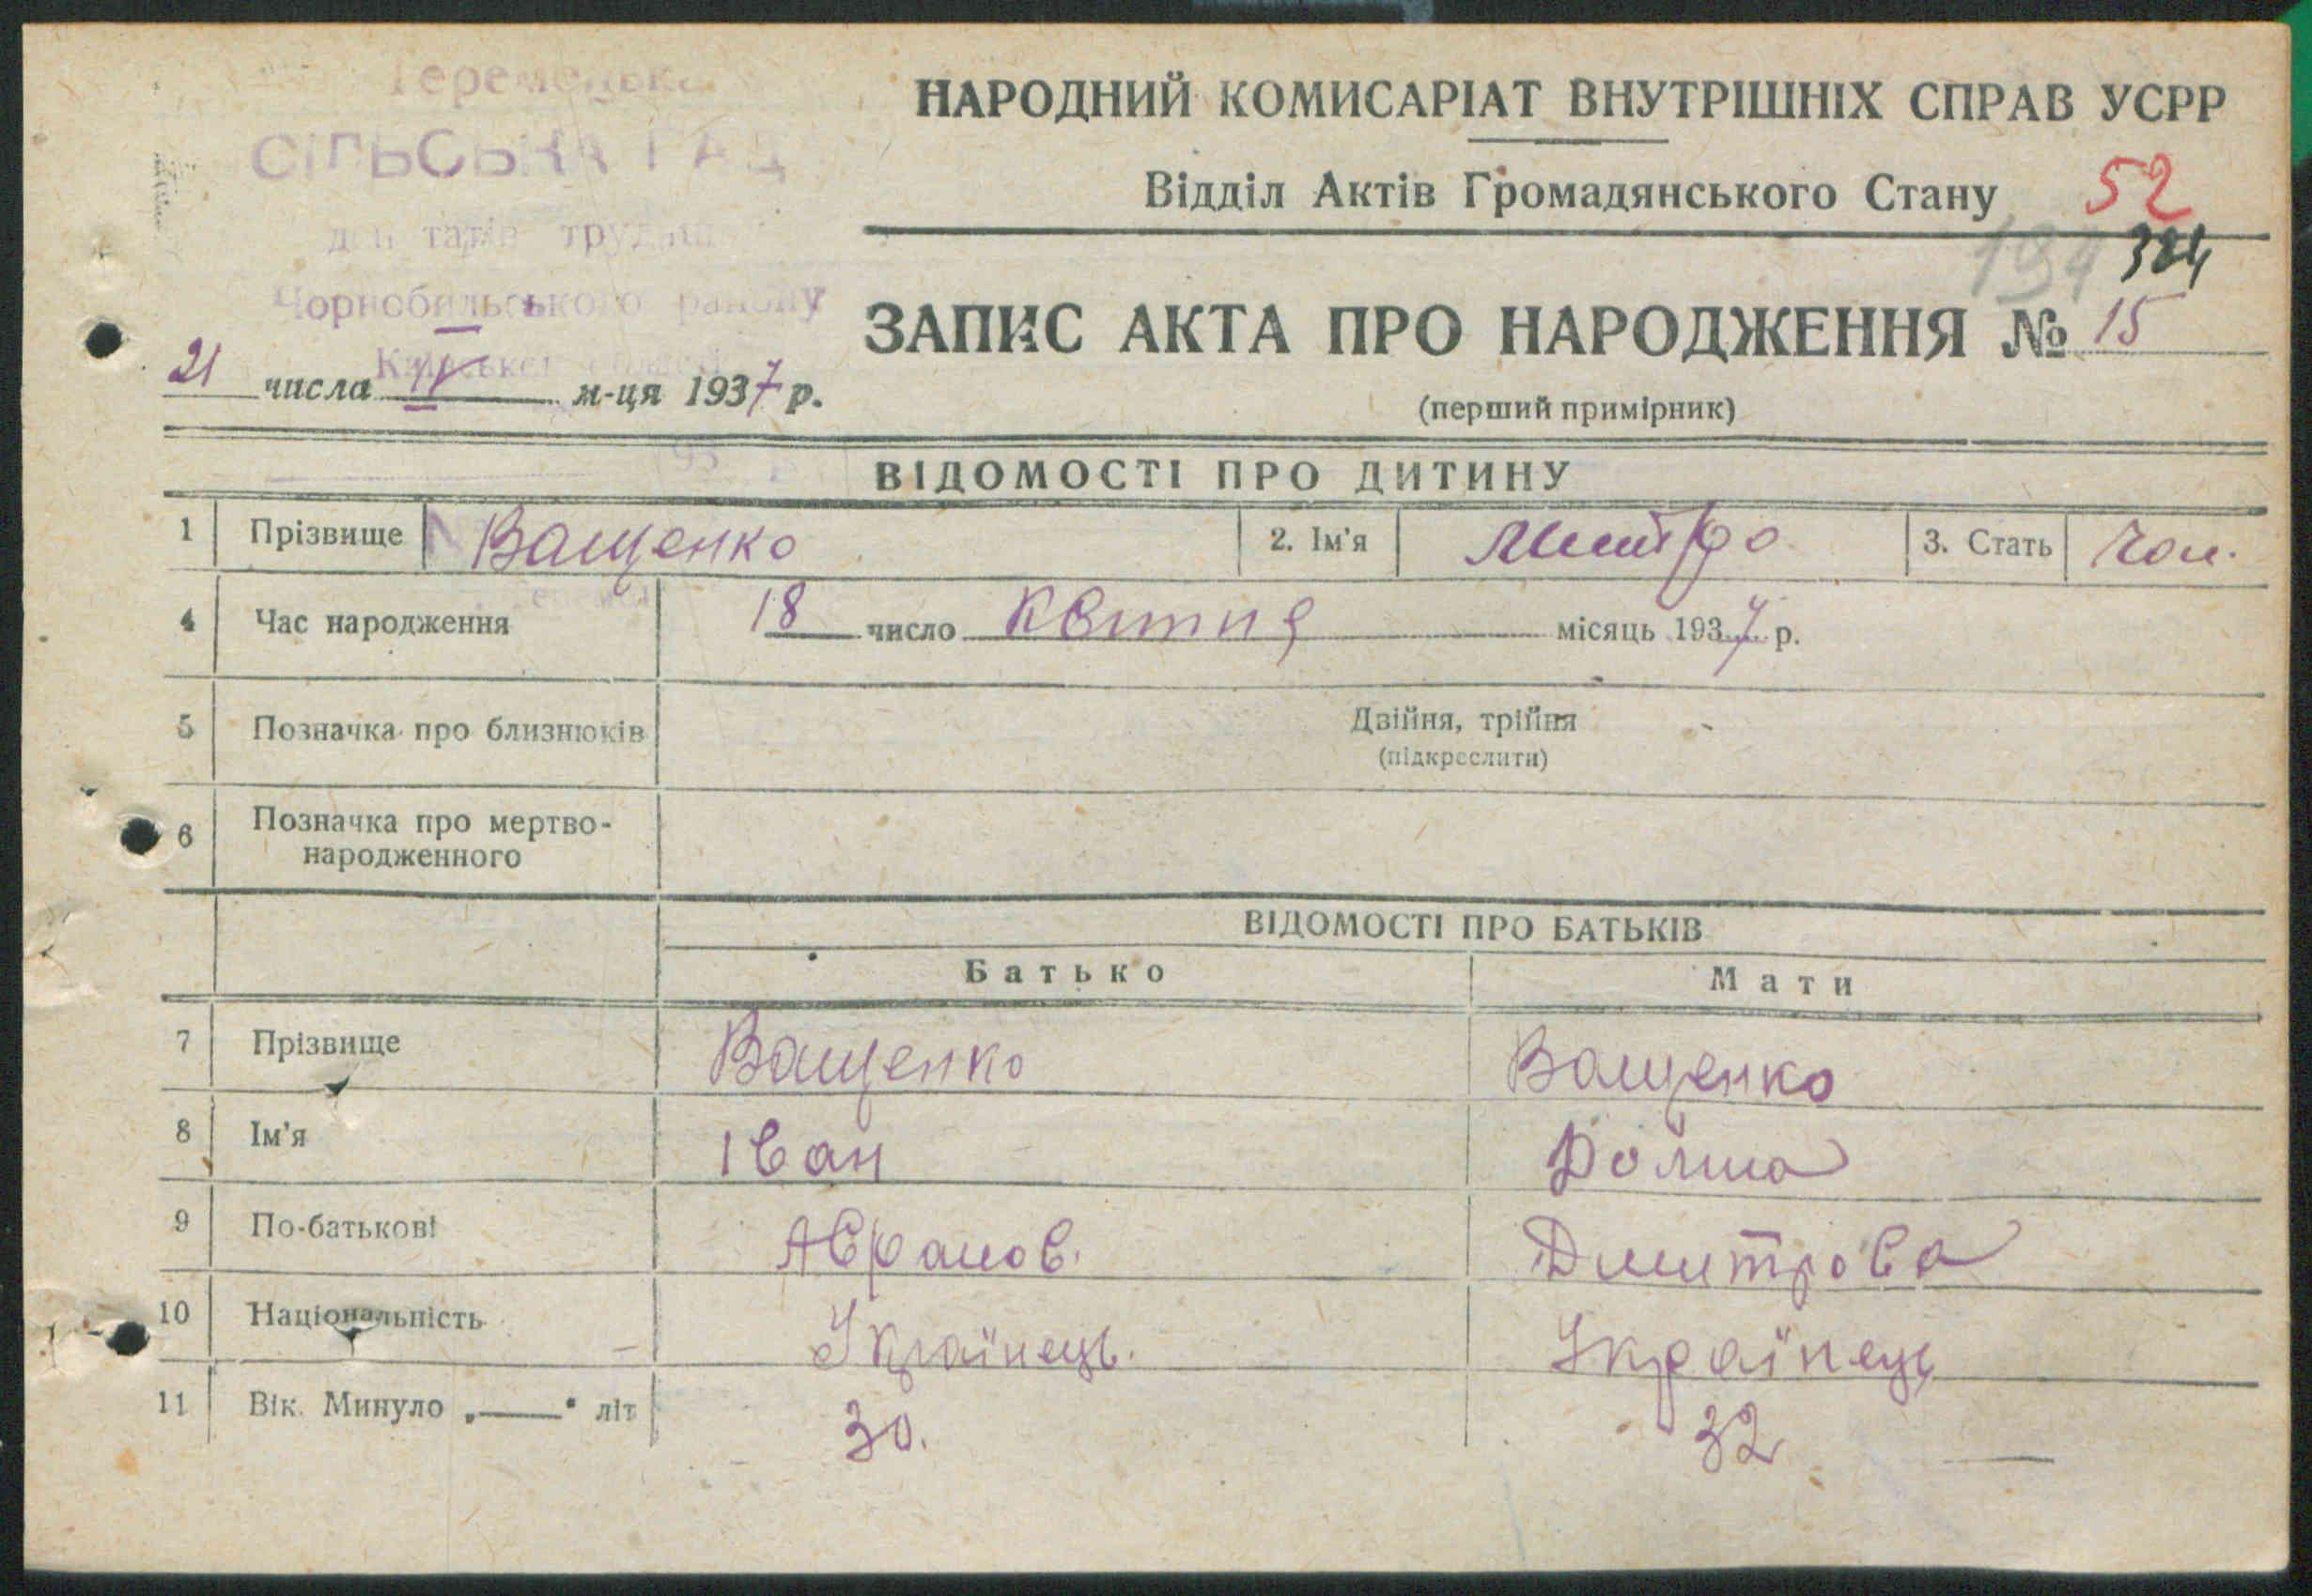 СІЛЬСЬКА РАД
Чорнобильського району
НАРОДНИЙ КОМИСАРІАТ ВНУТРІШНІХ СПРАВ УСРР
Відділ Актів Громадянського Стану 52
194 324
ЗАПИС АКТА ПРО НАРОДЖЕННЯ № 15
21 числа IV м-ця 1937 р.
(перший примірник)
ВІДОМОСТІ ПРО ДИТИНУ
1 Прізвище Ващенко 2. Ім'я Митро 3. Стать Чол.
4 Час народження 18 число Квитня місяць 1937 р.
5 Позначка про близнюків Двійня, трійня
(підкреслити)
6 Позначка про мертво-
народженного
ВІДОМОСТІ ПРО БАТЬКІВ
Батько Мати
7 Прізвище Ващенко Ващенко
8 Ім'я Іван Домна
9 По-батькові Аврамов. Дмитрова
10 Національність Українець. Українець
11 Вік. Минуло „——“ літ 30. 32